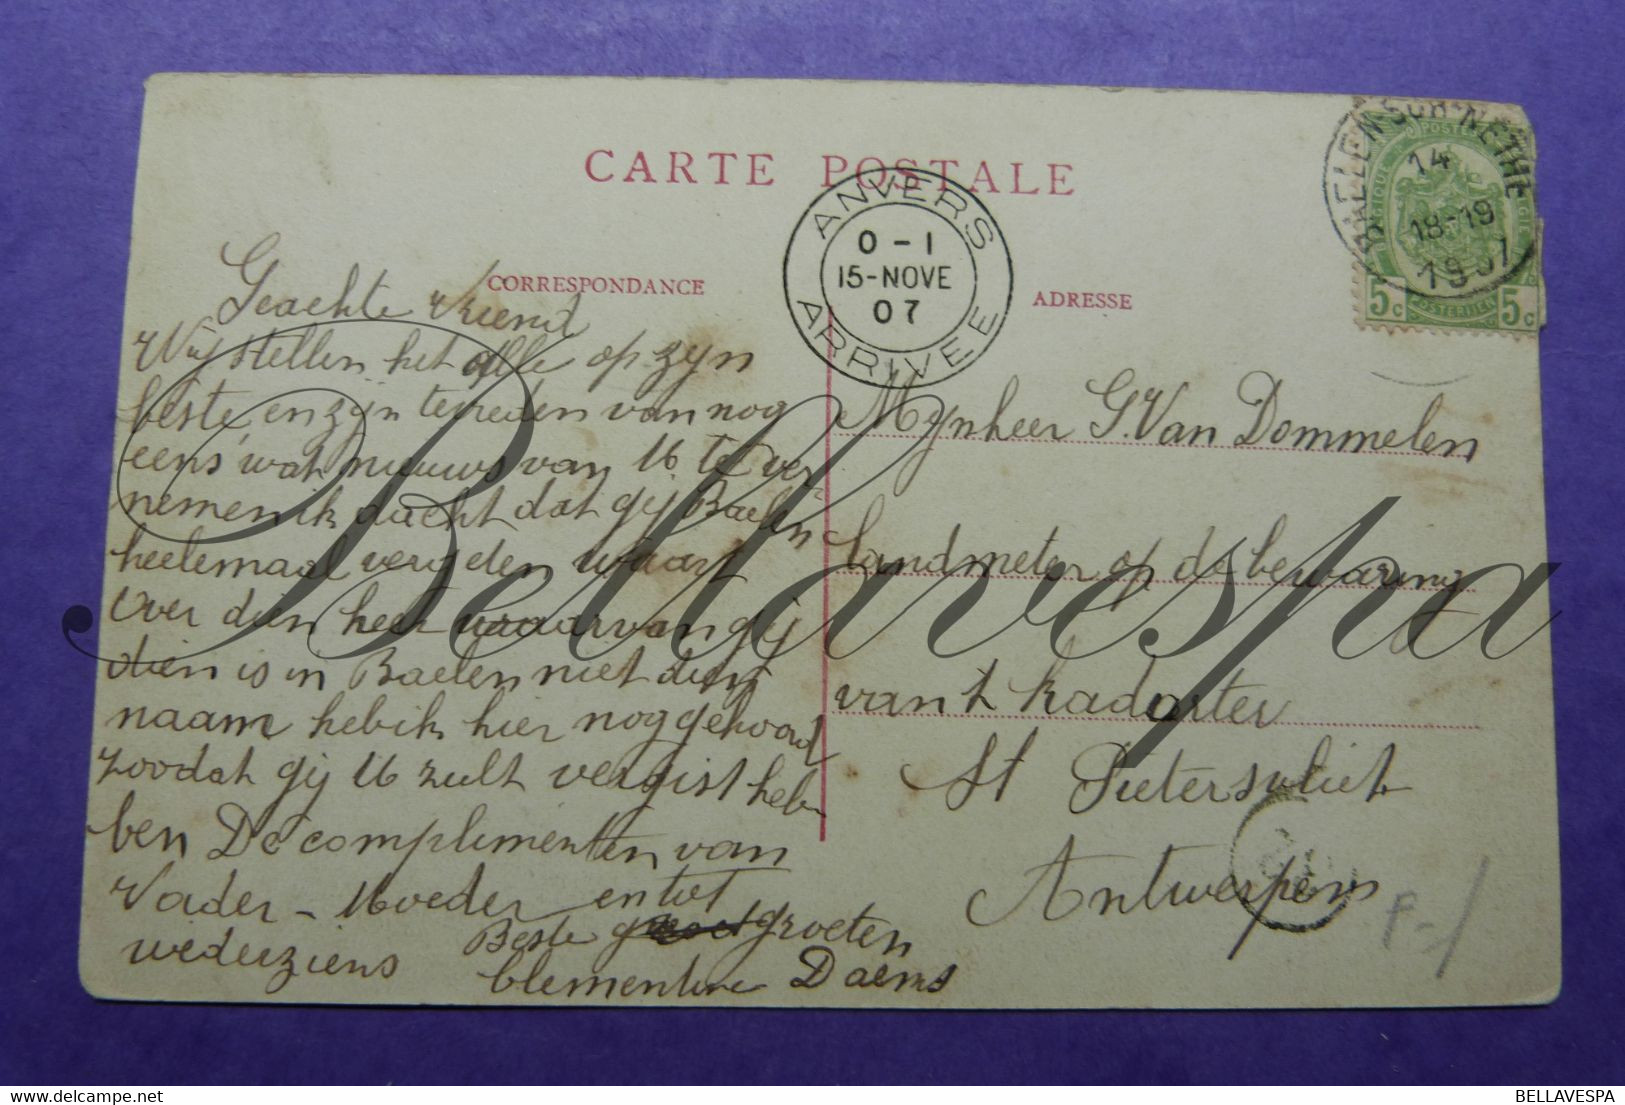 CARTE POSTALE
CORRESPONDANCE
ADRESSE
ANVERS
0-1
15-NOVE
07
ARRIVEE
BAELEN-SUR-NETHE
14
18-19
1907
POSTERIJEN
5c 5c
Geachte Vriend
Wij stellen het alle op zyn
beste, en zyn tevreden van nog
eens wat nieuws van U te ver-
nemen ik dacht dat gij Baelen
heelemaal vergeten waart
Over dien heer waarvan gij
dien is in Baelen niet dien
naam heb ik hier nog gehoord
zoodat gij U zult vergist heb
ben De complimenten van
Vader - Moeder en tot
wederziens
Beste groeten
Clementine Daems
Mynheer G. Van Dommelen
landmeter op de bewaring
van t kadaster
St Pietersvliet
Antwerpen
P-/
Bellavespa
BELLAVESPA